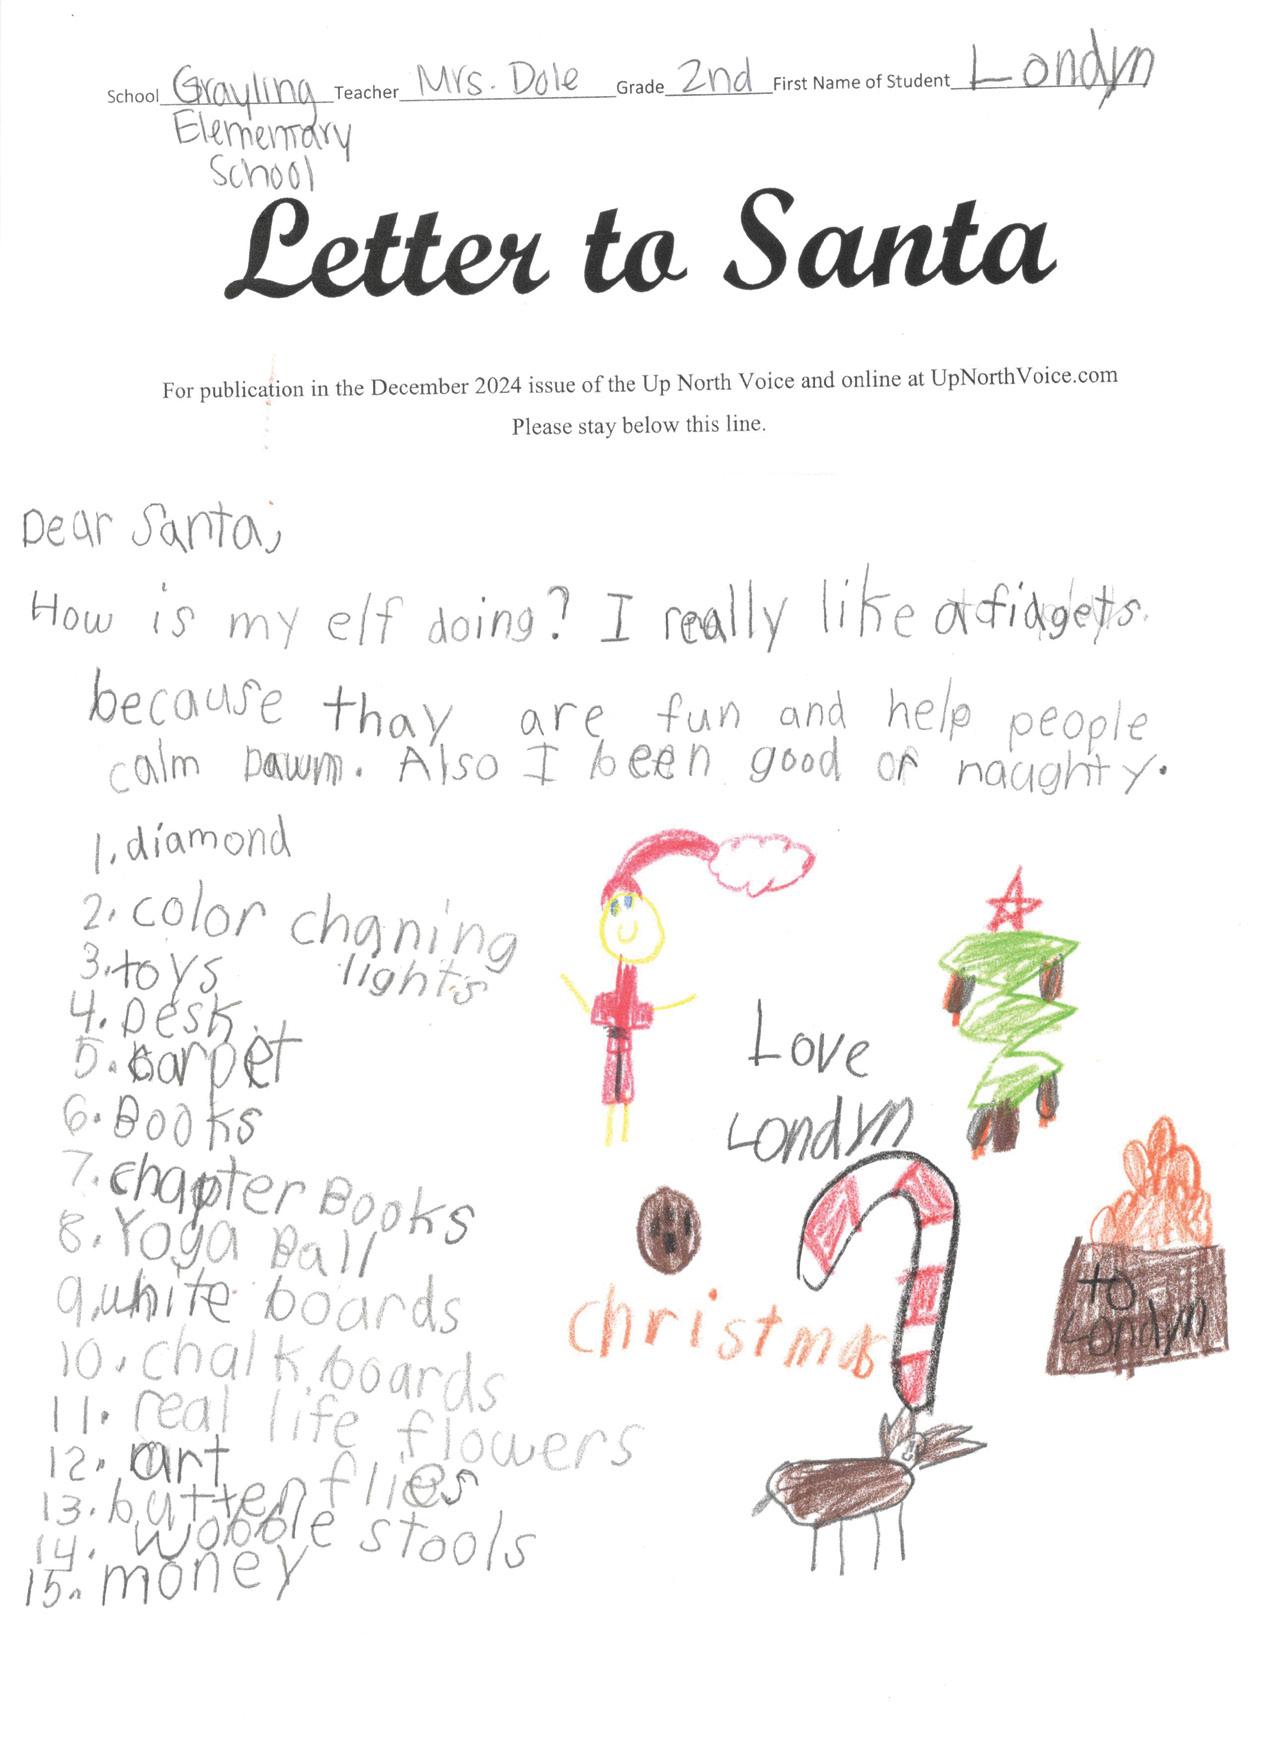 School Grayling Teacher Mrs. Dole Grade 2nd First Name of Student Londyn
Elementary
School
Letter to Santa
For publication in the December 2024 issue of the Up North Voice and online at UpNorthVoice.com
Please stay below this line.
Dear Santa,
How is my elf doing? I really like a fidgets.
because thay are fun and help people
calm Dawm. Also I been good or naughty.
1. diamond
2. color chaning
lights
3. toys
4. Desk.
5. carpet
6. Books
7. chapter Books
8. Yoga Ball
9. white boards
10. chalk boards
11. real life flowers
12. art
13. butten flies
14. wobble stools
15. money
Love
Londyn
christmas
to
Londyn